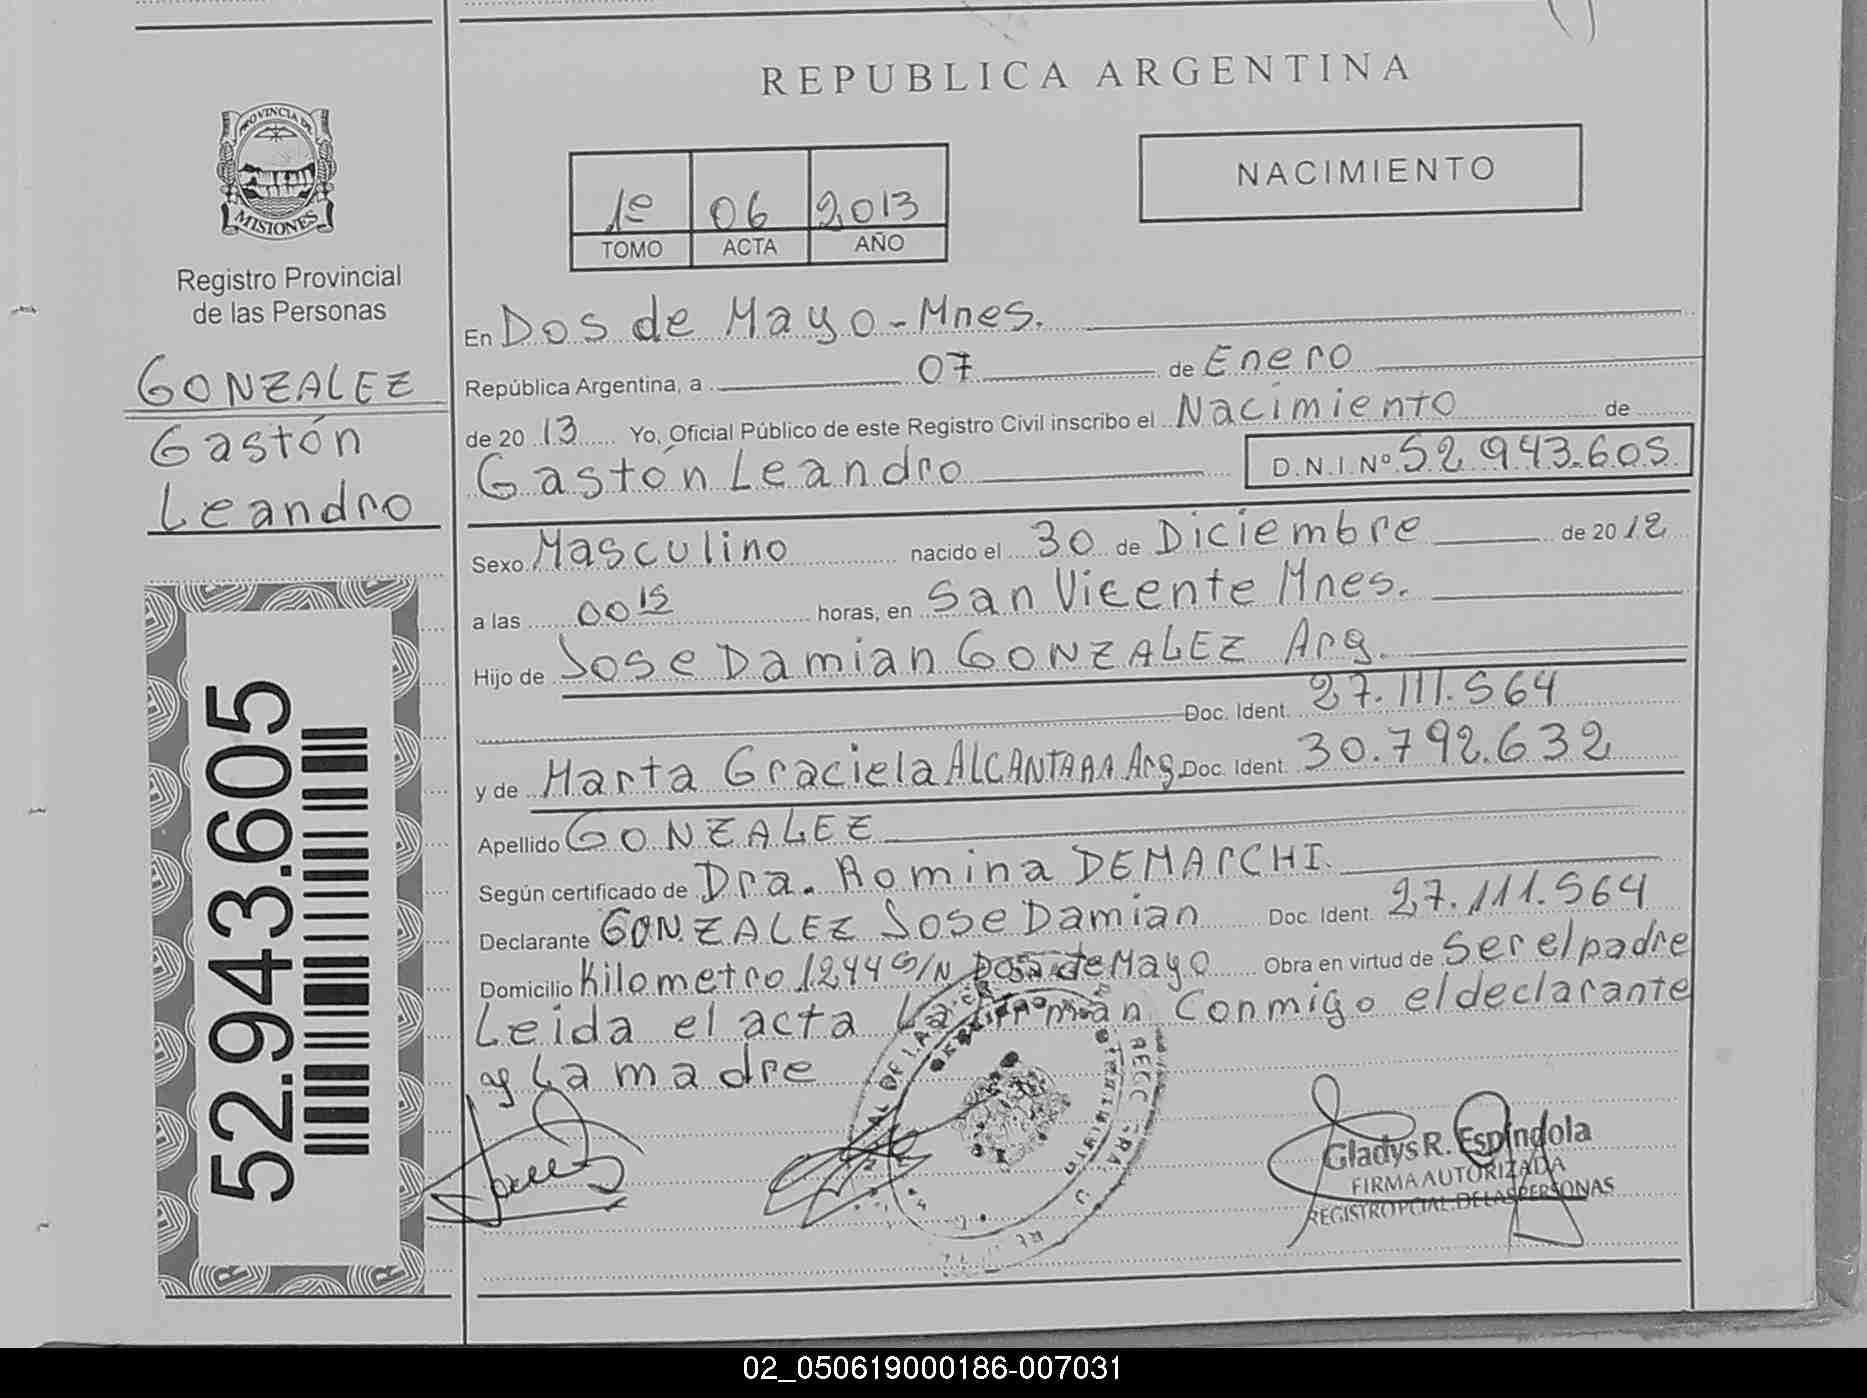 REPUBLICA ARGENTINA
PROVINCIA DE
MISIONES
Registro Provincial
de las Personas
GONZALEZ
Gastón
Leandro
52.943.605
1º 06 2013
TOMO ACTA AÑO
NACIMIENTO
En Dos de Mayo-Mnes.
República Argentina, a 07 de Enero
de 20 13 Yo, Oficial Público de este Registro Civil inscribo el Nacimiento de
Gastón Leandro D.N.I.Nº 52.943.605
Sexo Masculino nacido el 30 de Diciembre de 2012
a las 00 15 horas, en San Vicente Mnes.
Hijo de Jose Damian GONZALEZ Arg.
Doc. Ident. 27.111.564
y de Marta Graciela ALCANTARA Arg. Doc. Ident. 30.792.632
Apellido GONZALEZ
Según certificado de Dra. Romina DEMARCHI.
Declarante GONZALEZ Jose Damian Doc. Ident. 27.111.564
Domicilio Kilometro 1244 S/N Dos de Mayo Obra en virtud de Ser el padre
Leida el acta La firman Conmigo el declarante
y La madre
Gladys R. Espíndola
FIRMA AUTORIZADA
REGISTRO PCIAL. DE LAS PERSONAS
02_050619000186-007031